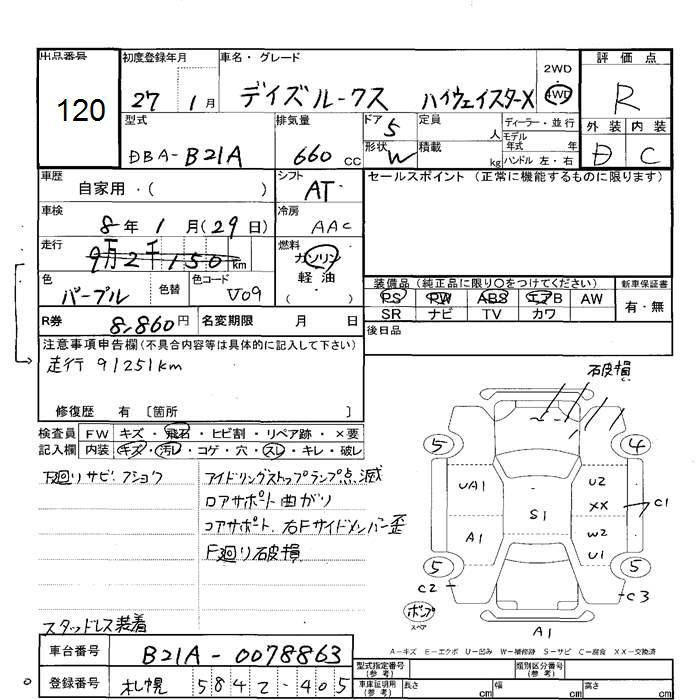 出品番号 初度登録年月 車名・グレード 評価点
120 27 1月 デイズルークス ハイウェイスターX 2WD 4WD R
型式 排気量 ドア 5 定員 人 ディーラー・並行 外装 内装
DBA-B21A 660cc 形状 W 積載 kg モデル年式 年 ハンドル 左・右 D C
車歴 自家用・( ) シフト AT セールスポイント (正常に機能するものに限ります)
車検 8年 1月(29日) 冷房 AAC
走行 9万2千150km 燃料 ガソリン 軽油 ( )
色 パープル 色替 色コード V09
装備品 (純正品に限り○をつけてください) 新車保証書
PS PW ABS エアB AW 有・無
SR ナビ TV カワ
R券 8,860円 名変期限 月 日 後日品
注意事項申告欄(不具合内容等は具体的に記入して下さい)
走行 91251km
修復歴 有 〔箇所 〕
検査員 FW キズ・飛石・ヒビ割・リペア跡・×要
記入欄 内装 キズ・汚レ・コゲ・穴・スレ・キレ・破レ
下廻りサビ、フショク
アイドリングストップランプ点滅
ロアサポート曲がり
コアサポート、右Fサイドメンバー歪
F廻り石破損
スタッドレス装着
石破損
5 4
UA1 U2
XX C1
S1
A1 W2
U1
5 5
C2 C3
ポンプ
スペア
A1
A-キズ E-エクボ U-凹み W-補修跡 S-サビ C-腐食 XX-交換済
車台番号 B21A-0078863
型式指定番号(参考) 類別区分番号(参考)
登録番号 札幌 5842-405
車庫証明用(参考) 長さ cm 幅 cm 高さ cm